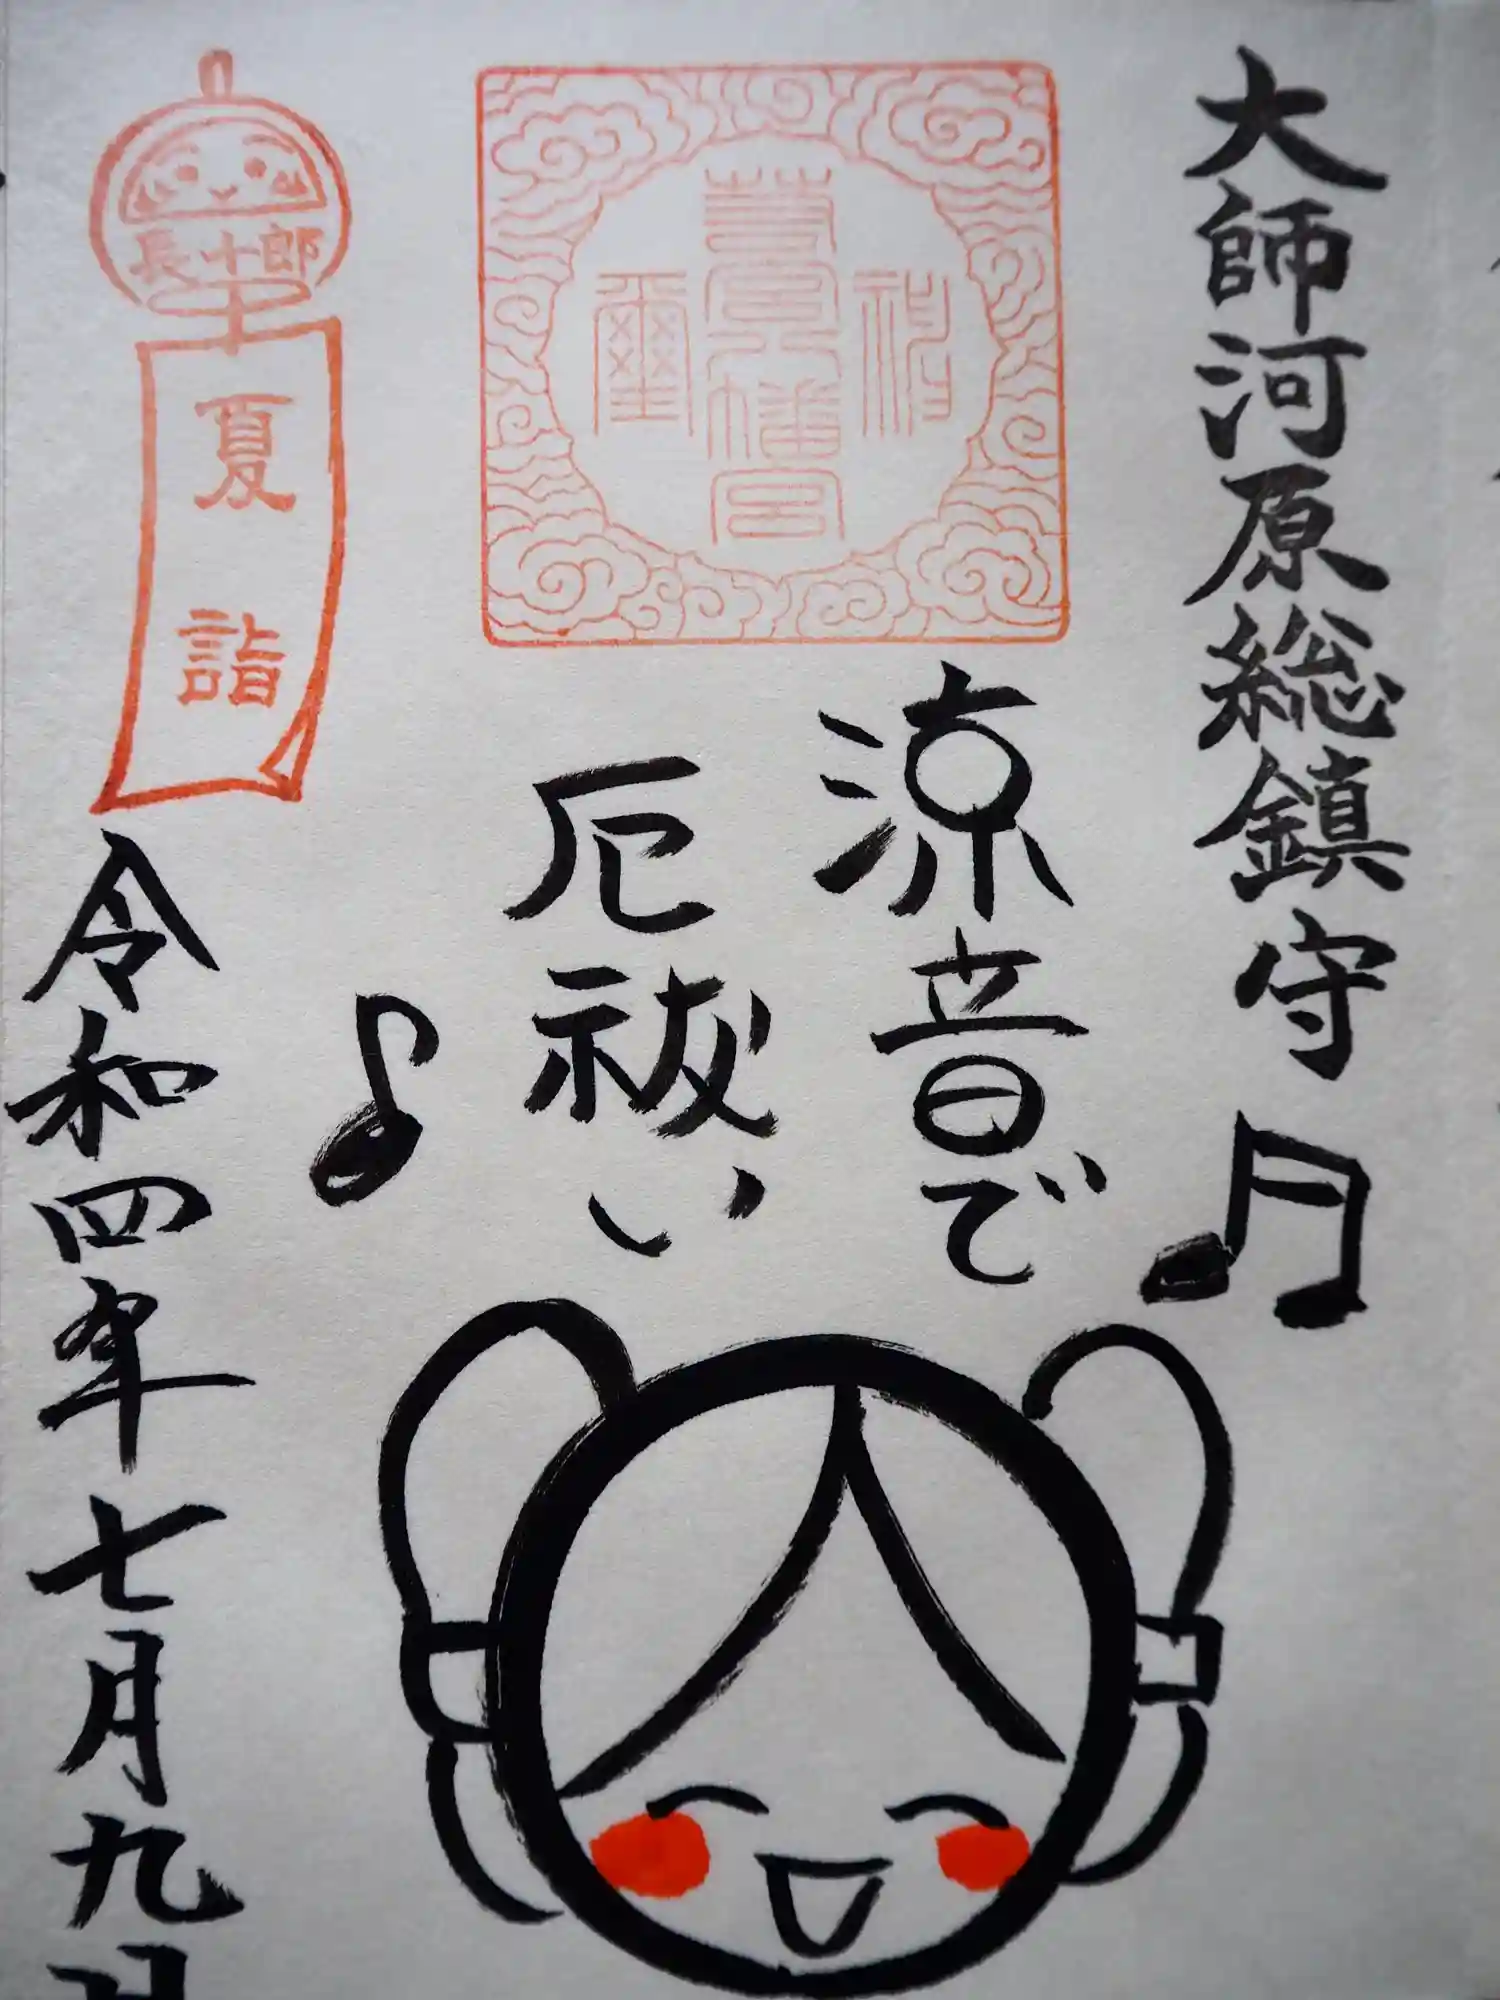 大師河原総鎮守
若宮八幡宮
神璽
涼音で
厄祓い
長十郎
夏詣
令和四年七月九日